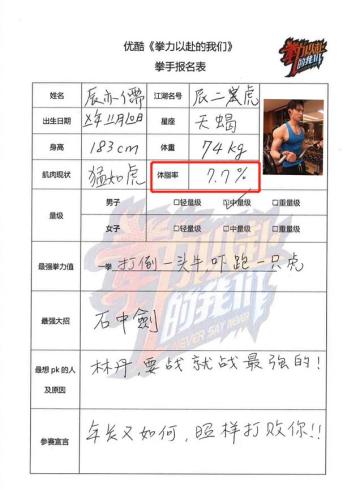 优酷《拳力以赴的我们》
拳手报名表
拳力以赴的我们
姓名 辰亦儒 江湖名号 辰二黑虎
出生日期 X年11月10日 星座 天蝎
身高 183cm 体重 74kg
肌肉现状 猛如虎 体脂率 7.7%
量级 男子 □轻量级 ☑中量级 □重量级
女子 □轻量级 □中量级 □重量级
最强拳力值 一拳 打倒一头牛,吓跑一只虎
最强大招 石中劍
最想pk的人
及原因 林丹,要战就战最强的!
参赛宣言 年长又如何,照样打败你!!
拳力以赴
的我们
NEVER SAY NEVER